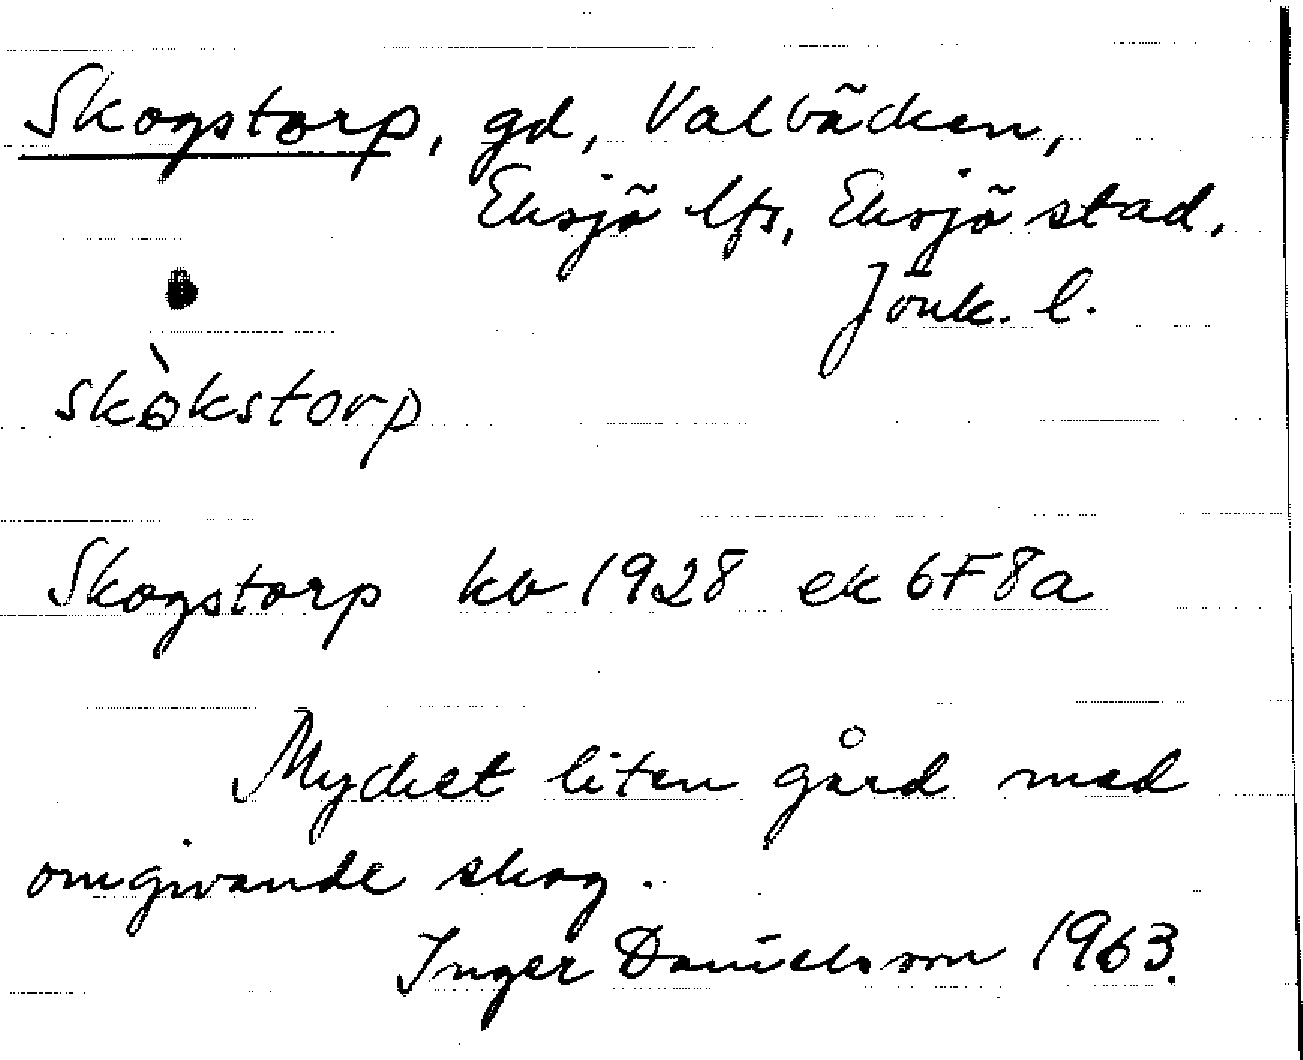 Skogstorp, gd, Valbäcken,
Eksjö lfs, Eksjö stad,
Jönk. l.
skòkstorp
Skogstorp kb 1928 ek 6F8a
Mycket liten gård med
omgivande skog.
Inger Danielsson 1963.